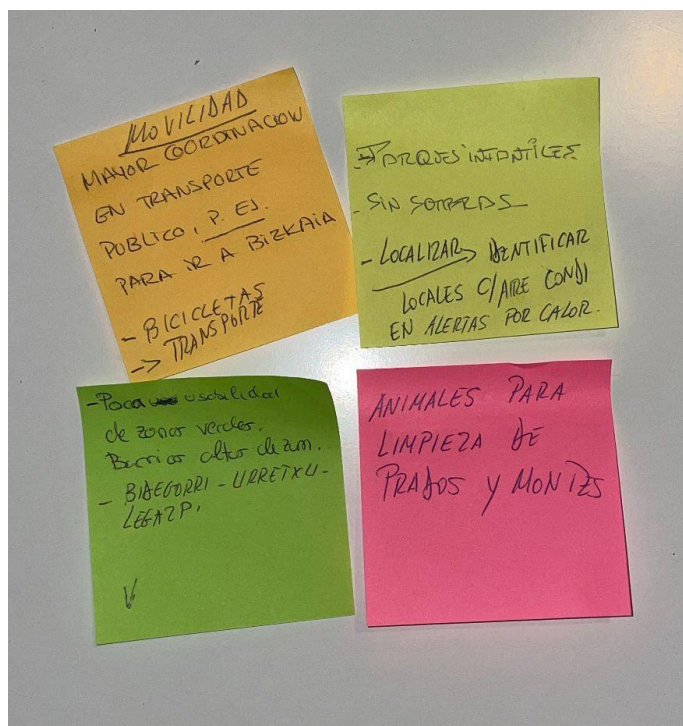 MOVILIDAD
MAYOR COORDINACION
EN TRANSPORTE
PUBLICO, P. EJ.
PARA IR A BIZKAIA
- BICICLETAS
-> TRANSPORTE
- PARQUES INFANTILES
- SIN SOMBRAS
- LOCALIZAR> IDENTIFICAR
LOCALES C/AIRE CONDI
EN ALERTAS POR CALOR.
- Poca usabilidad
de zonas verdes.
Barrios altos de zum.
- BIDEGORRI - URRETXU -
LEGAZPI.
ANIMALES PARA
LIMPIEZA DE
PRADOS Y MONTES